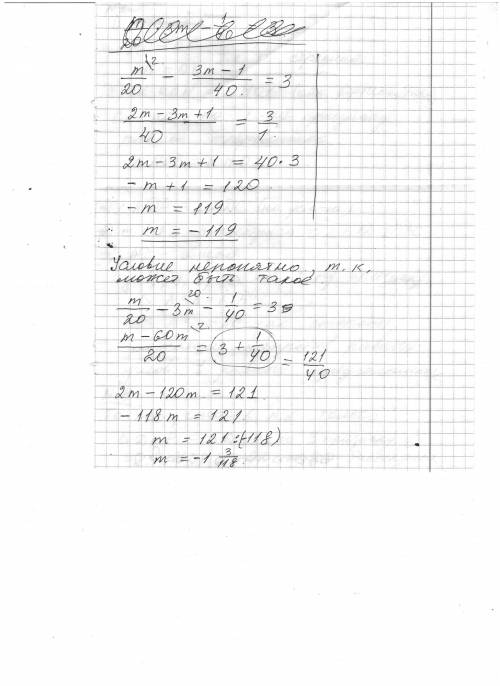 m/20 ^\2 - (3m-1)/40. = 3
(2m-3m+1)/40 = 3/1.
2m-3m+1 = 40·3
-m+1 = 120.
-m = 119
m = -119
Условие непонятно, т.к.
может быть такое
m/20 - 3m ^\20 - 1/40 = 3
(m-60m)/20 ^\2 = 3 + 1/40 = 121/40
2m-120m = 121.
-118m = 121
m = 121:(-118)
m = -1 3/118.